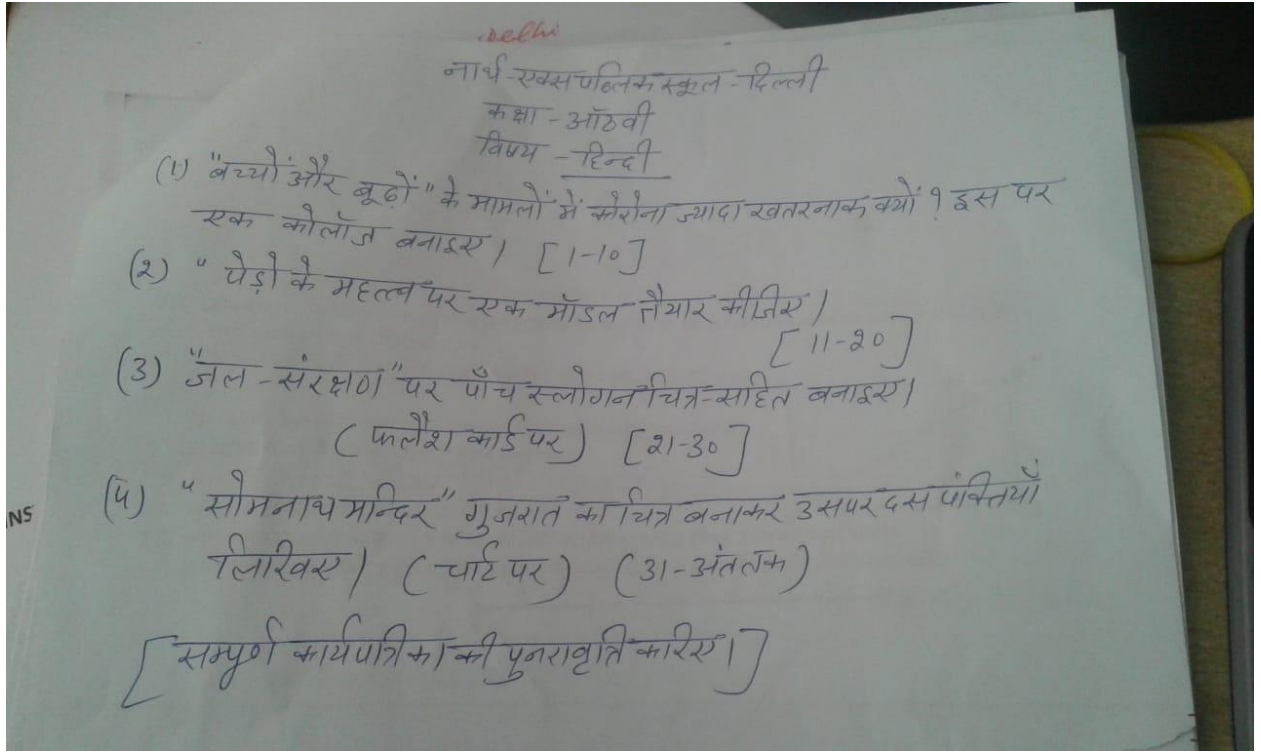 Delhi
नार्थ-एक्स पब्लिक स्कूल - दिल्ली
कक्षा - ऑठवी
विषय - हिन्दी
(1) "बच्चों और बूढ़ों" के मामलों में कोरोना ज्यादा खतरनाक क्यों ? इस पर
एक कोलॉज बनाइए। [1-10]
(२) " पेड़ो के महत्त्व पर एक मॉडल तैयार कीजिए।
[11-२0]
(3) "जल - संरक्षण" पर पाँच स्लोगन चित्र-सहित बनाइए।
(फ्लैश कार्ड पर) [२1-30]
(4) " सोमनाथ मन्दिर" गुजरात का चित्र बनाकर उसपर दस पंक्तियाँ
लिखिए। (चार्ट पर) (31-अंत तक)
[सम्पूर्ण कार्यपत्रिका की पुनरावृति करिए।]
NS